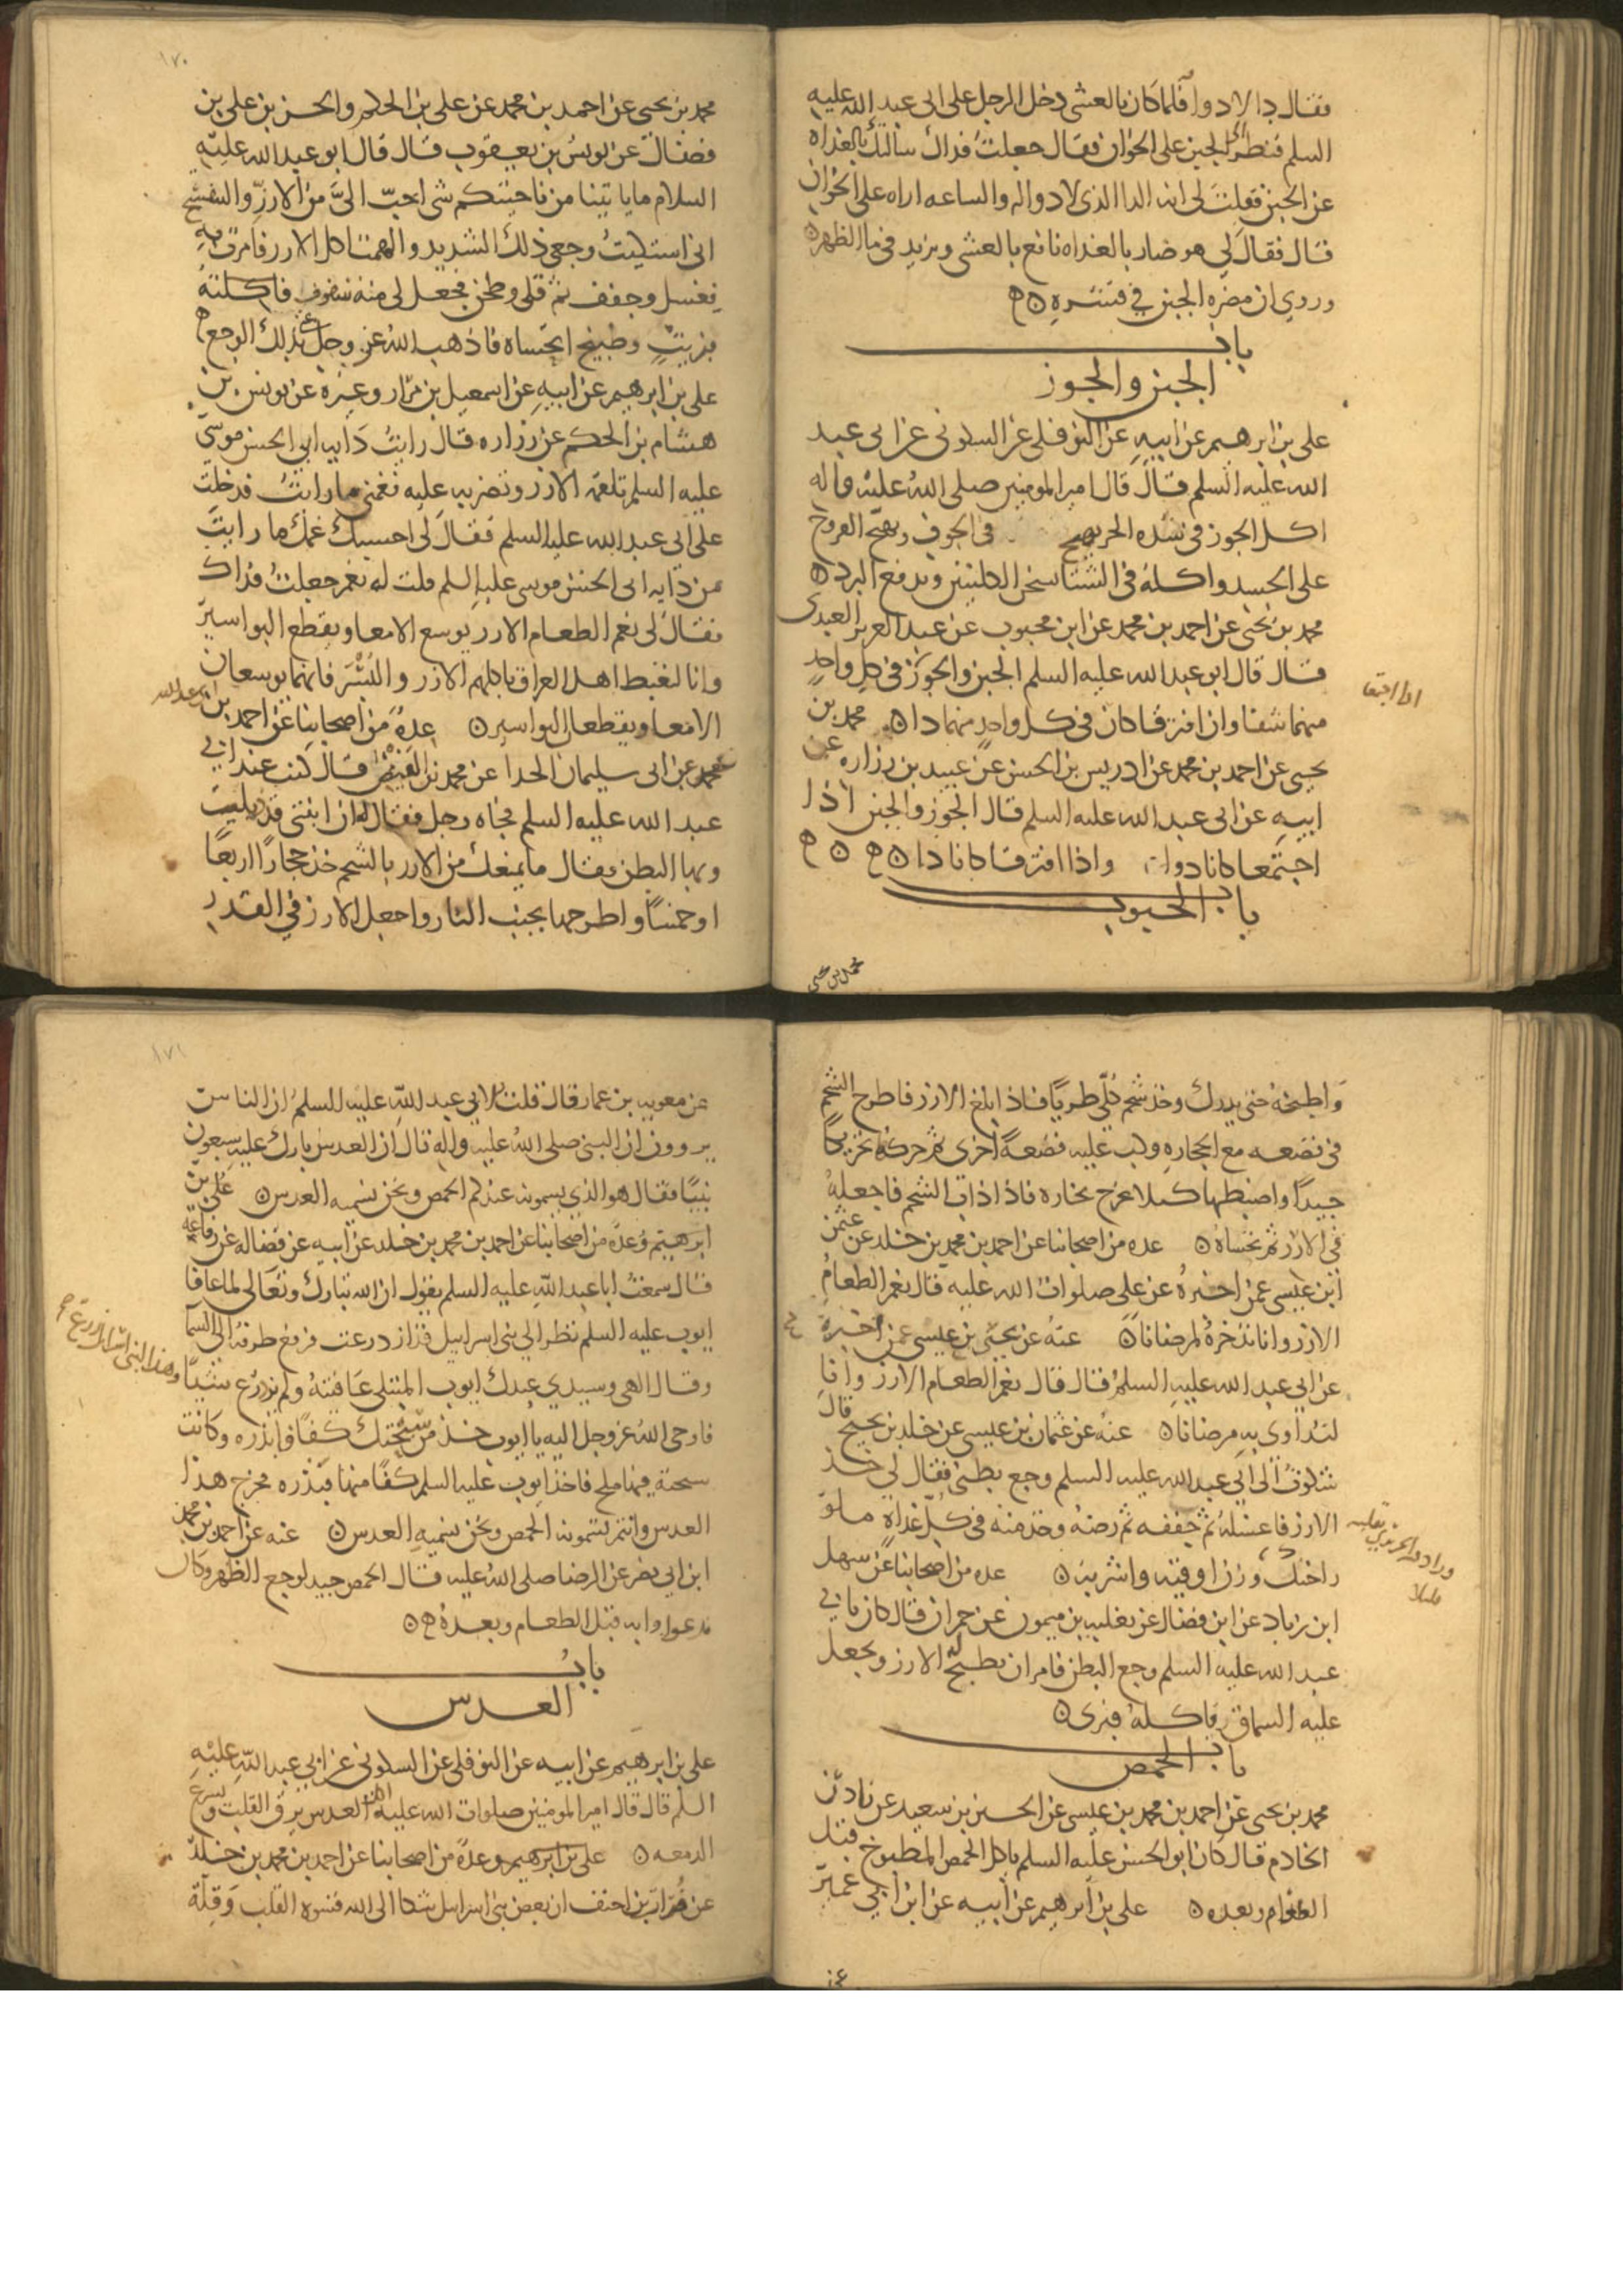 فقال دا لا دوا فلما كان بالعشي دخل الرجل على ابي عبد الله عليه
السلم فنظر الى الجبن على الخوان فقال جعلت فداك سالتك بالغداه
عن الجبن فقلت لي انه الدا الذي لا دوا له والساعه اراه على الخوان
قال فقال لي هو ضار بالغداه نافع بالعشي ويزيد في ما الظهر
وروي ان مضره الجبن في قشره
باب
الجبن والجوز
على بن ابرهيم عن ابيه عن النوفلى عن السكونى عن ابى عبد
الله عليه السلم قال قال امير المومنين صلى الله عليه واله
اكل الجوز فى شده الحر يهيج فى الجوف ويهيج القروح
على الجسد واكله فى الشتا يسخن الكليتين ويدفع البرد
محمد بن يحيى عن احمد بن محمد عن ابن محبوب عن عبد العزيز العبدى
قال قال ابو عبد الله عليه السلم الجبن والجوز فى كل واحد
اذا اجتمعا
منهما شفا وان افترقا كان فى كل واحد منهما دا محمد بن
يحيى عن احمد بن محمد عن ادريس بن الحسن عن عبيد بن زراره عن
ابيه عن ابى عبد الله عليه السلم قال الجوز والجبن اذا
اجتمعا كانا دوا واذا افترقا كانا دا
باب الحبوب
محمد بن يحيى
١٧٠
محمد بن يحيى عن احمد بن محمد عن على بن الحكم والحسن بن على بن
فضال عن يونس بن يعقوب قال قال ابو عبد الله عليه
السلام ما ياتينا من ناحيتكم شى احب الىّ من الارز والبنفسج
انى اشتكيت وجعى ذلك الشديد والهمت اكل الارز فامرت به
فغسل وجفف ثم قلى وطحن فجعل لى منه سفوف فاكلته
بزيت وطبيخ اتحساه فاذهب الله عز وجل بذلك الوجع
على بن ابرهيم عن ابيه عن اسمعيل بن مرار وغيره عن يونس بن
هشام بن الحكم عن زراره قال رايت دايه ابى الحسن موسى
عليه السلم تلقمه الارز وتضربه عليه فغمنى ما رايت فدخلت
على ابى عبد الله عليه السلم فقال لى احسبك غمك ما رايت
من دايه ابى الحسن موسى عليه السلم قلت له نعم جعلت فداك
فقال لى نعم الطعام الارز يوسع الامعا ويقطع البواسير
وانا لنغبط اهل العراق باكلهم الارز والبسر فانهما يوسعان
الامعا ويقطعان البواسير عدة من اصحابنا عن احمد بن
ابى عبد الله
محمد عن ابى سليمان الحذا عن محمد بن الفيض قال كنت عند ابي
عبد الله عليه السلم فجاه رجل فقال له ان ابنتى قد ذبلت
وبها البطن فقال ما يمنعك من الارز بالشحم خذ حجارًا اربعًا
او خمسًا واطرحها بجنب النار واجعل الارز في القدر
واطبخه حتى يدرك وخذ شحم كلى طريًا فاذا بلغ الارز فاطرح الشحم
فى قصعه مع الحجاره وكب عليه قصعة اخرى ثم حركه تحريكًا
جيدًا واضبطها كيلا يخرج بخاره فاذا ذاب الشحم فاجعله
فى الارز ثم تحساه عده من اصحابنا عن احمد بن محمد بن خلد عن عثمن
ابن عيسى عمن اخبره عن على صلوات الله عليه قال نعم الطعام
الارز وانا ندخره لمرضانا عنه عن يحيى بن عيسى عمن اخبره
عن ابي عبد الله عليه السلم قال قال نعم الطعام الارز وانا
لنداوى به مرضانا عنه عن عثمان بن عيسى عن خلد بن نجيح قال
شكوت الى ابي عبد الله عليه السلم وجع بطنى فقال لى خذ
الارز فاغسله ثم جففه ثم رضه وخذ منه فى كل غداة ملو
راحتك وزن اوقيه واشربه عده من اصحابنا عن سهل
ابن زياد عن ابن فضال عن ثعلبه بن ميمون عن حمران قال كان بابي
عبد الله عليه السلم وجع البطن فامر ان يطبخ له الارز ويجعل
عليه السماق فاكله فبرى
باب الحمص
محمد بن يحيى عن احمد بن محمد بن عيسى عن الحسين بن سعيد عن نادر
الخادم قال كان ابو الحسن عليه السلم ياكل الحمص المطبوخ قبل
الطعام وبعده على بن ابرهيم عن ابيه عن ابن ابي عمير
عن
١٧١
عن معويه بن عمار قال قلت لابي عبد الله عليه السلم ان الناس
يروون ان النبى صلى الله عليه واله قال ان العدس بارك عليه سبعون
نبيًا فقال هو الذي يسمونه عندكم الحمص ونحن نسميه العدس على بن
ابرهيم وعدة من اصحابنا عن احمد بن محمد بن خلد عن ابيه عن فضاله عن رفاعه
قال سمعت ابا عبد الله عليه السلم يقول ان الله تبارك وتعالى لما عافا
ايوب عليه السلم نظر الى بنى اسراييل قد ازدرعت فرفع طرفه الى السما
وقال الهى وسيدي عبدك ايوب المبتلى عافيته ولم يزدرع شيًا
وهذا لبنى اسراييل زرع
فاوحى الله عز وجل اليه يا ايوب خذ من سبحتك كفًا فابذره وكانت
سبحته فيها ملح فاخذ ايوب عليه السلم كفًا منها فبذره فخرج هذا
العدس وانتم تسمونه الحمص ونحن نسميه العدس عنه عن احمد بن محمد
ابن ابي نصر عن الرضا صلى الله عليه قال الحمص جيد لوجع الظهر وكان
يدعوا به قبل الطعام وبعده
باب
العدس
على بن ابرهيم عن ابيه عن النوفلى عن السكونى عن ابي عبد الله عليه
السلم قال قال امير المومنين صلوات الله عليه اكل العدس يرق القلب ويسرع
الدمعه على بن ابرهيم وعدة من اصحابنا عن احمد بن محمد بن خلد
عن فرات بن احنف ان بعض بنى اسراييل شكا الى الله قسوه القلب وقلة